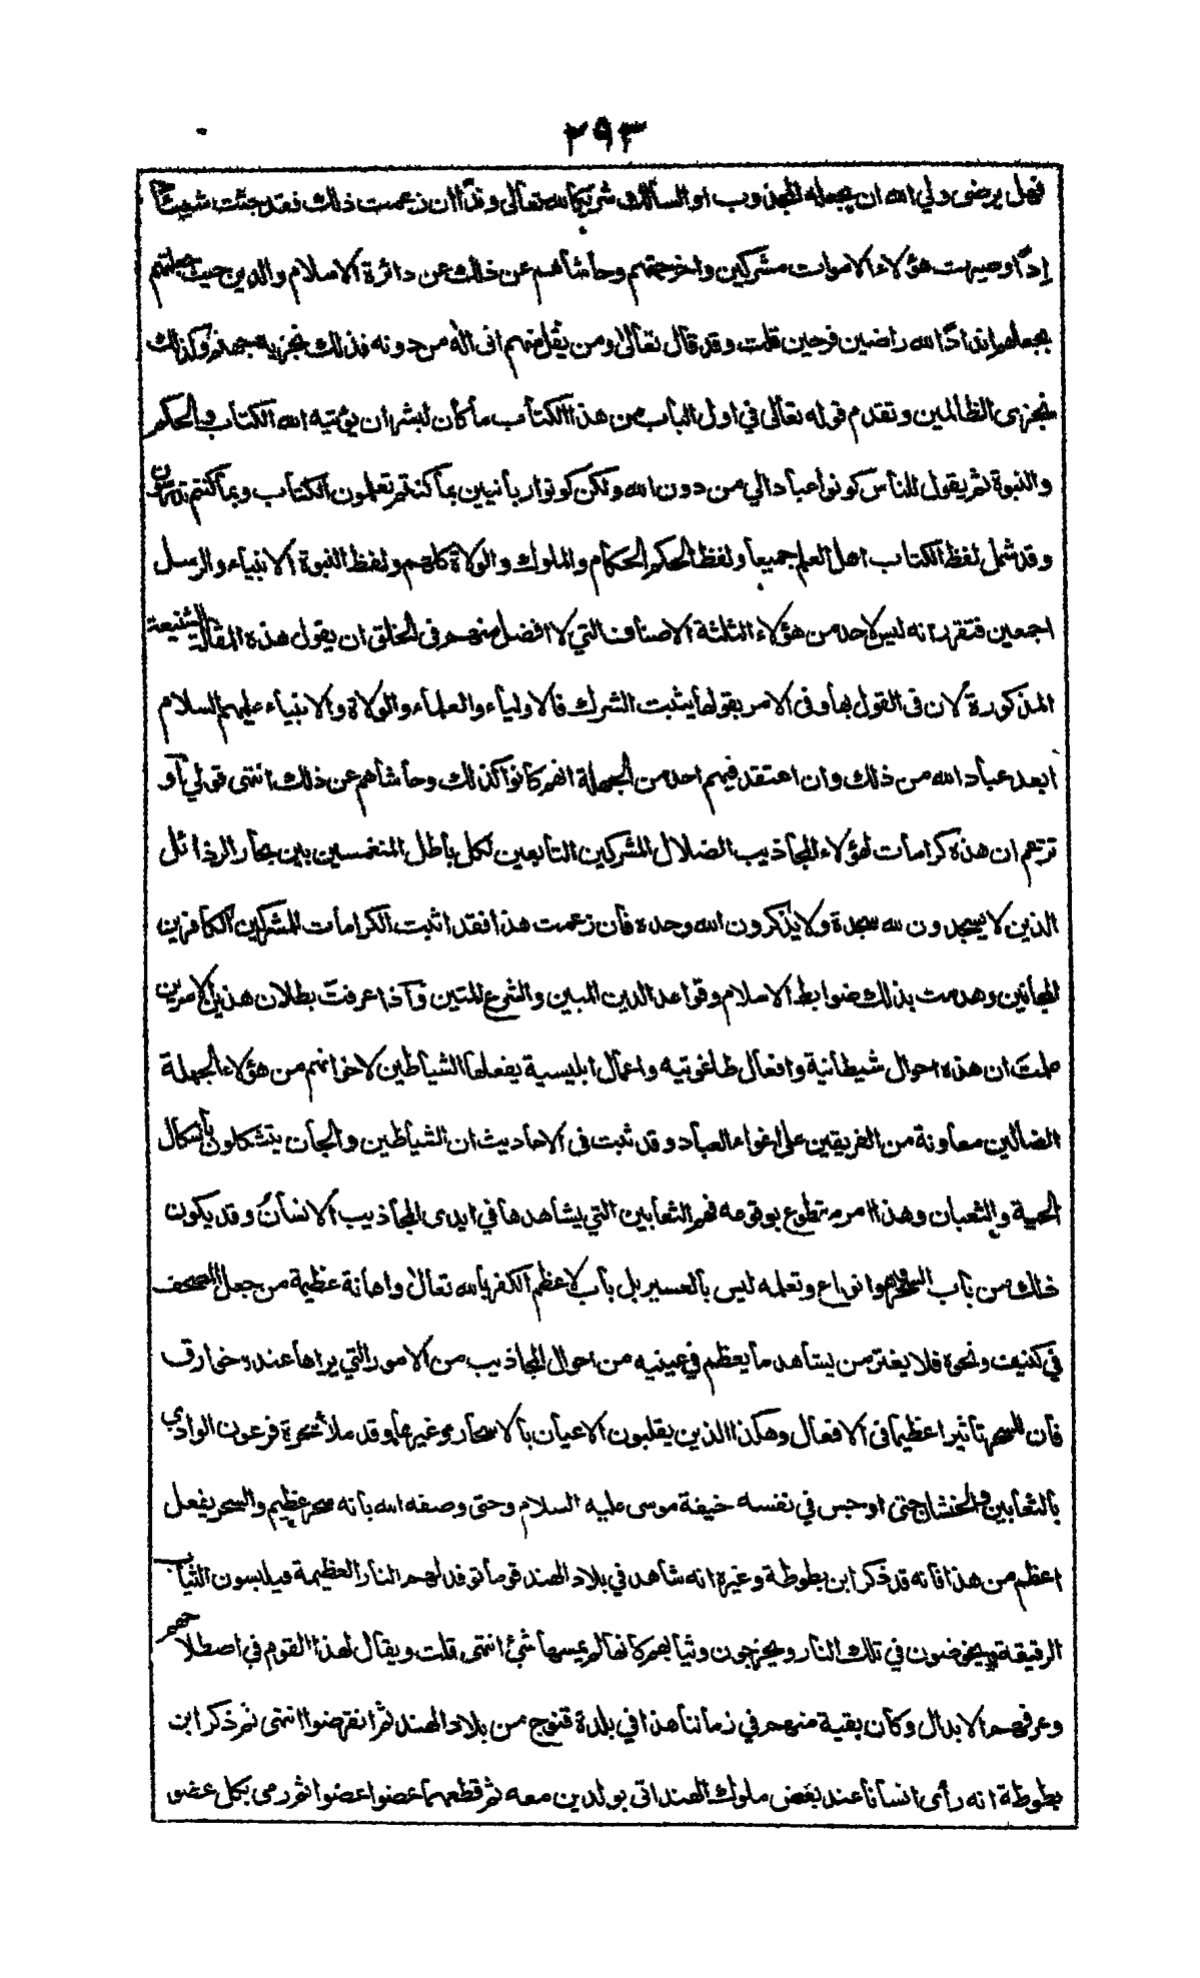 ٢٩٣
فهل يرضى ولي الله ان يجعله المجذوب او السالك شريكا لله تعالى وندّا ان زعمت ذلك فقد جئت شيئا
إدّا وصيرت هؤلاء الاموات مشركين واخرجتهم وحاشاهم عن ذلك عن دائرة الاسلام والدين حيث جعلتهم
بجعلهم اندادًا لله راضين فرحين قلت وقد قال تعالى ومن يقل منهم انى اله من دونه فذلك نجزيه جهنم وكذلك
نجزى الظالمين وتقدم قوله تعالى في اول الباب من هذا الكتاب ما كان لبشر ان يؤتيه الله الكتاب والحكم
والنبوة ثم يقول للناس كونوا عبادا لي من دون الله ولكن كونوا ربانيين بما كنتم تعلمون الكتاب وبما كنتم تدرسون
وقد شمل لفظ الكتاب اهل العلم جميعا ولفظ الحكم الحكام والملوك والولاة كلهم ولفظ النبوة الانبياء والرسل
اجمعين فتقرر انه ليس لاحد من هؤلاء الثلثة الاصناف التي لا افضل منهم في الخلق ان يقول هذه المقالة الشنيعة
المذكورة لان في القول بها وفى الامر بقولها يثبت الشرك فالاولياء والعلماء والولاة والانبياء عليهم السلام
ابعد عباد الله من ذلك وان اعتقد فيهم احد من الجهلة انهم كانوا كذلك وحاشاهم عن ذلك انتهى قولي او
تزعم ان هذه كرامات لهؤلاء المجاذيب الضلال المشركين التابعين لكل باطل المنغمسين بين بحار الرذائل
الذين لا يسجدون لله سجدة ولا يذكرون الله وحده فان زعمت هذا فقد اثبت الكرامات للمشركين الكافرين
المجانين وهدمت بذلك ضوابط الاسلام وقواعد الدين المبين والشرع المتين واذا عرفت بطلان هذين الامرين
علمت ان هذه احوال شيطانية وافعال طاغوتيه واعمال ابليسية يفعلها الشياطين لاخوانهم من هؤلاء الجهلة
الضالين معاونة من الفريقين على اغواء العباد وقد ثبت فى الاحاديث ان الشياطين والجان يتشكلون باشكال
الحية والثعبان وهذا امر مقطوع بوقوعه فهم الثعابين التي يشاهدها في ايدى المجاذيب الانسان وقد يكون
ذلك من باب السحر وهو انواع وتعلمه ليس بالعسير بل باب لاعظم الكفر بالله تعالى واهانة عظيمة من جعل المصحف
في كنيف ونحوه فلا يغتر من يشاهد ما يعظم في عينيه من احوال المجاذيب من الامور التي يراها عنده خوارق
فان للسحر تأثيرا عظيما فى الافعال وهكذا الذين يقلبون الاعيان بالاسحار وغيرها وقد ملأ سحرة فرعون الوادي
بالثعابين والحنشان حتى اوجس في نفسه خيفة موسى عليه السلام وحتى وصفه الله بانه سحر عظيم والسحر يفعل
اعظم من هذا فانه قد ذكر ابن بطوطة وغيره انه شاهد في بلاد الهند قوما توقد لهم النار العظيمة فيلبسون الثياب
الرقيقة ويخوضون في تلك النار ويخرجون وثيابهم كانها لم يمسها شئ انتهى قلت ويقال لهذا القوم في اصطلاحهم
وعرفهم الابدال وكان بقية منهم في زماننا هذا في بلدة قنوج من بلاد الهند ثم انقرضوا انتهى ثم ذكر ابن
بطوطة انه رأى انسانا عند بعض ملوك الهند اتى بولدين معه ثم قطعهما عضوا عضوا ثم رمى بكل عضو